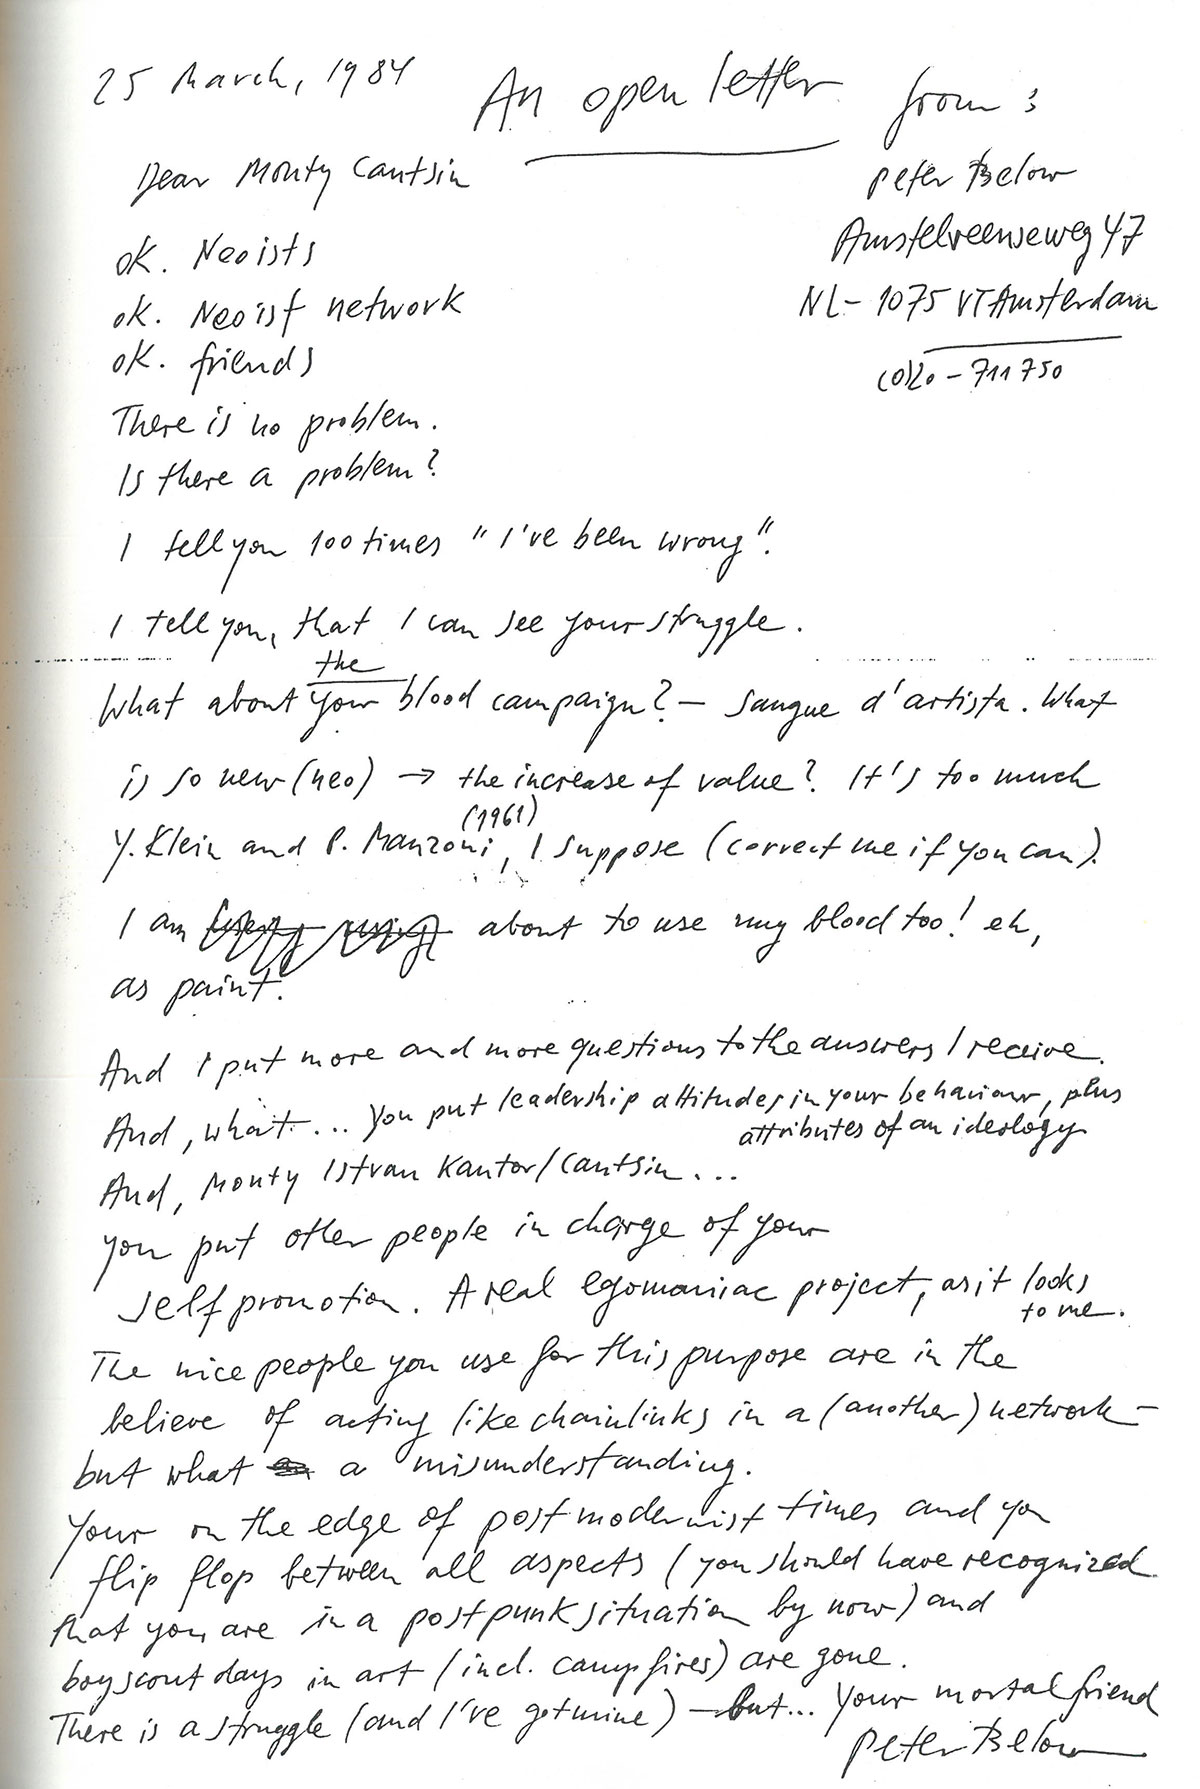 25 March, 1984
An open letter from:
Peter Below
Amstelveenseweg 47
NL- 1075 VT Amsterdam
(0)20 - 711750
Dear Monty Cantsin
ok. Neoists
ok. Neoist network
ok. friends
There is no problem.
Is there a problem?
I tell you 100 times "I've been wrong".
I tell you, that I can see your struggle.
the
What about your blood campaign? – Sangue d'artista. What
is so new (neo) → the increase of value? It's too much
(1961)
Y. Klein and P. Manzoni, I suppose (correct me if you can).
I am about to use my blood too! eh,
as paint.
And I put more and more questions to the answers I receive.
And, what... you put leadership attitudes in your behaviour, plus
attributes of an ideology
And, Monty Istvan Kantor/Cantsin...
you put other people in charge of your
self promotion. A real egomaniac project, as it looks
to me.
The nice people you use for this purpose are in the
believe of acting like chainlinks in a (another) network –
but what a misunderstanding.
Your on the edge of postmodernist times and you
flip flop between all aspects (you should have recognized
that you are in a postpunk situation by now) and
boyscout days in art (incl. camp fires) are gone.
There is a struggle (and I've got mine) – but... Your mortal friend
Peter Below